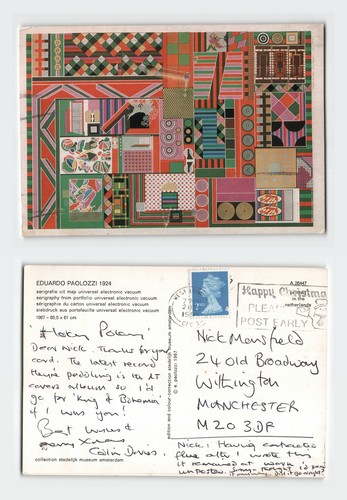 EDUARDO PAOLOZZI 1924
serigrafie uit map universal electronic vacuum
serigraphy from portfolio universal electronic vacuum
sérigraphie du carton universal electronic vacuum
siebdruck aus portefeuille universal electronic vacuum
1967 - 89,5 x 61 cm
Dear Nick. Thanks for your
card. The latest record
They're peddling is the
covers album so I'd
go for 'King of Bohemia'
if I was you!
Best wishes &
Xmas
Colin Davies.
collection stedelijk museum amsterdam
edition and colour: collection stedelijk museum amsterdam
© e. paolozzi 1967
Happy Christmas
PLEASE
POST EARLY
A 28447
in the
netherlands
Nick Mansfield
24 Old Broadway
Withington
MANCHESTER
M20 3DF
Nick: Having contracted
flu after I wrote this
it remained at work
UNPOSTED.